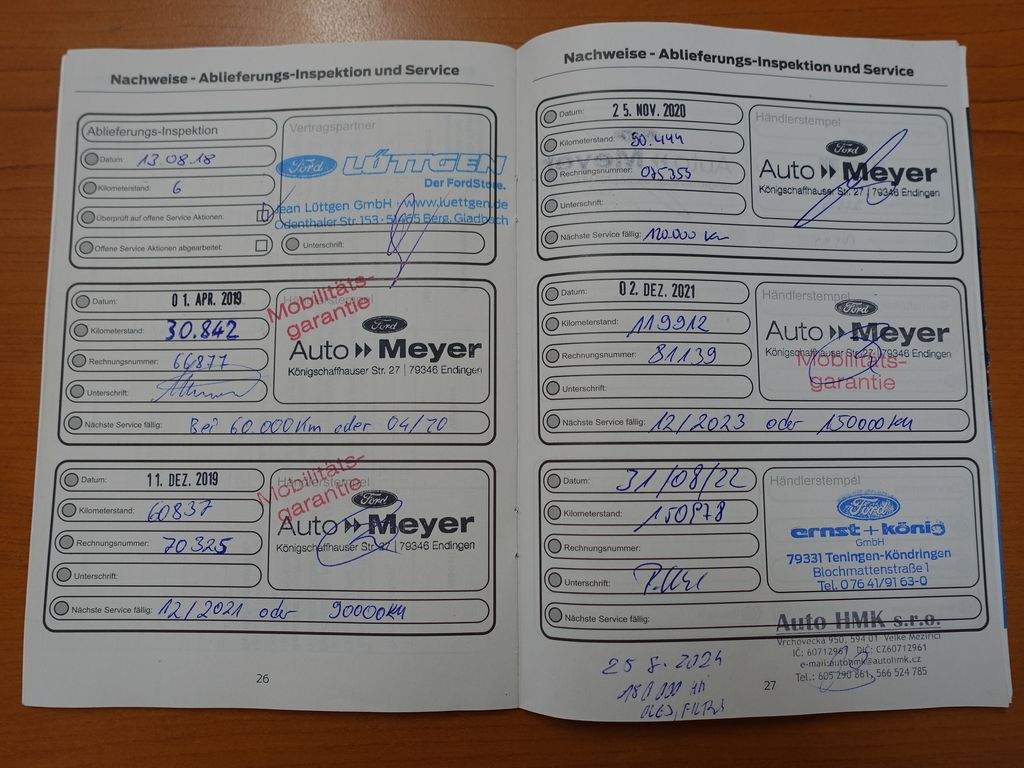 Nachweise - Ablieferungs-Inspektion und Service
Ablieferungs-Inspektion
Datum: 13 08.18
Kilometerstand: 6
Überprüft auf offene Service Aktionen:
Offene Service Aktionen abgearbeitet:
Vertragspartner
Ford LÜTTGEN
Der FordStore.
Jean Lüttgen GmbH · www.luettgen.de
Odenthaler Str. 153 · 51465 Berg. Gladbach
Unterschrift:
Datum: 01. APR. 2019
Kilometerstand: 30.842
Rechnungsnummer: 66877
Unterschrift:
Nächste Service fällig: Bei 60.000Km oder 04/20
Mobilitäts-
garantie
Ford
Auto Meyer
Königschaffhauser Str. 27 | 79346 Endingen
Datum: 11. DEZ. 2019
Kilometerstand: 60837
Rechnungsnummer: 70325
Unterschrift:
Nächste Service fällig: 12/2021 oder 90000KM
Händlerstempel
Mobilitäts-
garantie
Ford
Auto Meyer
Königschaffhauser Str. 27 | 79346 Endingen
26
Nachweise - Ablieferungs-Inspektion und Service
Datum: 25. NOV. 2020
Kilometerstand: 90.444
Rechnungsnummer: 075353
Unterschrift:
Nächste Service fällig: 120.000 Km
Händlerstempel
Ford
Auto Meyer
Königschaffhauser Str. 27 | 79346 Endingen
Datum: 02. DEZ. 2021
Kilometerstand: 119912
Rechnungsnummer: 81139
Unterschrift:
Nächste Service fällig: 12/2023 oder 150000KM
Händlerstempel
Ford
Auto Meyer
Königschaffhauser Str. 27 | 79346 Endingen
Mobilitäts-
garantie
Datum: 31/08/22
Kilometerstand: 150978
Rechnungsnummer:
Unterschrift:
Nächste Service fällig:
Händlerstempel
Ford
ernst+könig
GmbH
79331 Teningen-Köndringen
Blochmattenstraße 1
Tel. 0 76 41/91 63-0
Auto HMK s.r.o.
Vrchovecká 950, 594 01 Velké Meziříčí
IČ: 60712961 DIČ: CZ60712961
e-mail:autohmk@autohmk.cz
Tel.: 605 290 861, 566 524 785
25 8. 2024
180 000 KM
OLEJ, FILTRY
27